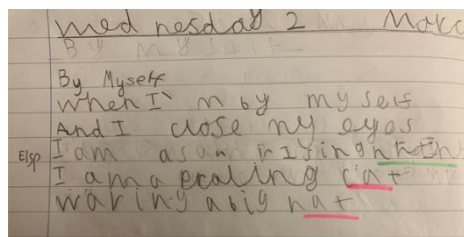 Wednesday 2 Marc
By myself
By Myself
When I'm by my self
And I close my eyes
I am a sun rising
I am a praling cat
waring a big hat